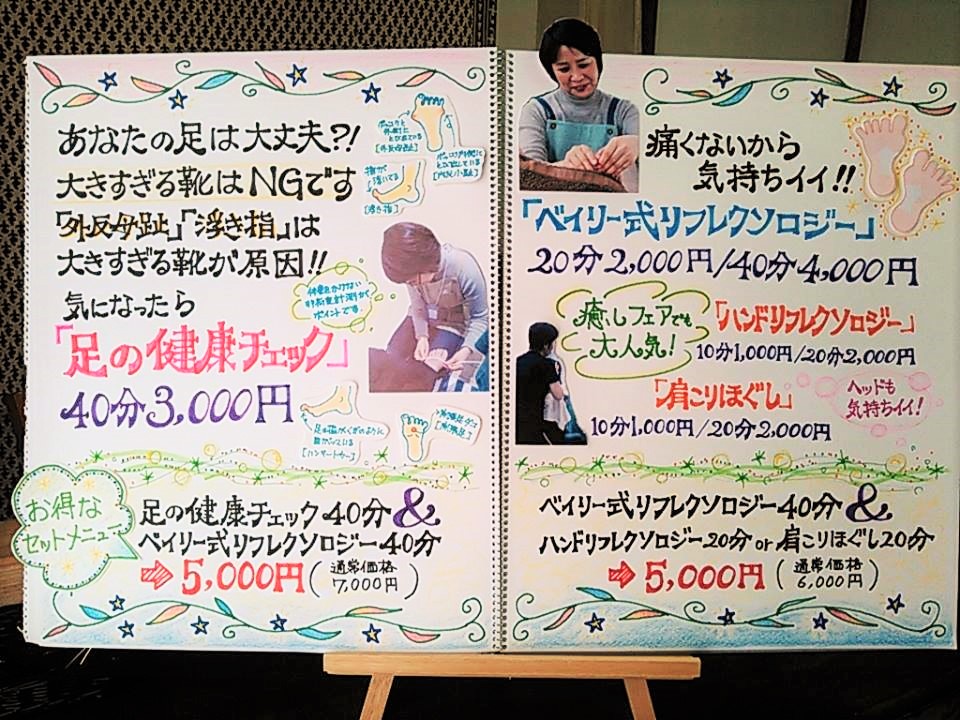 あなたの足は大丈夫?!
大きすぎる靴はNGです
「外反母趾」「浮き指」は
大きすぎる靴が原因!!
気になったら
「足の健康チェック」
40分3,000円
指が
浮いてる
[浮き指]
[外反母趾]
[内反小趾]
ポイントです
[ハンマートゥ]
お得な
セットメニュー
足の健康チェック40分&
ベイリー式リフレクソロジー40分
➡5,000円(通常価格
7,000円)
痛くないから
気持ちイイ!!
「ベイリー式リフレクソロジー」
20分2,000円/40分4,000円
癒しフェアでも
大人気!
「ハンドリフレクソロジー」
10分1,000円/20分2,000円
「肩こりほぐし」
10分1,000円/20分2,000円
ヘッドも
気持ちイイ!
ベイリー式リフレクソロジー40分&
ハンドリフレクソロジー20分or肩こりほぐし20分
➡5,000円(通常価格
6,000円)